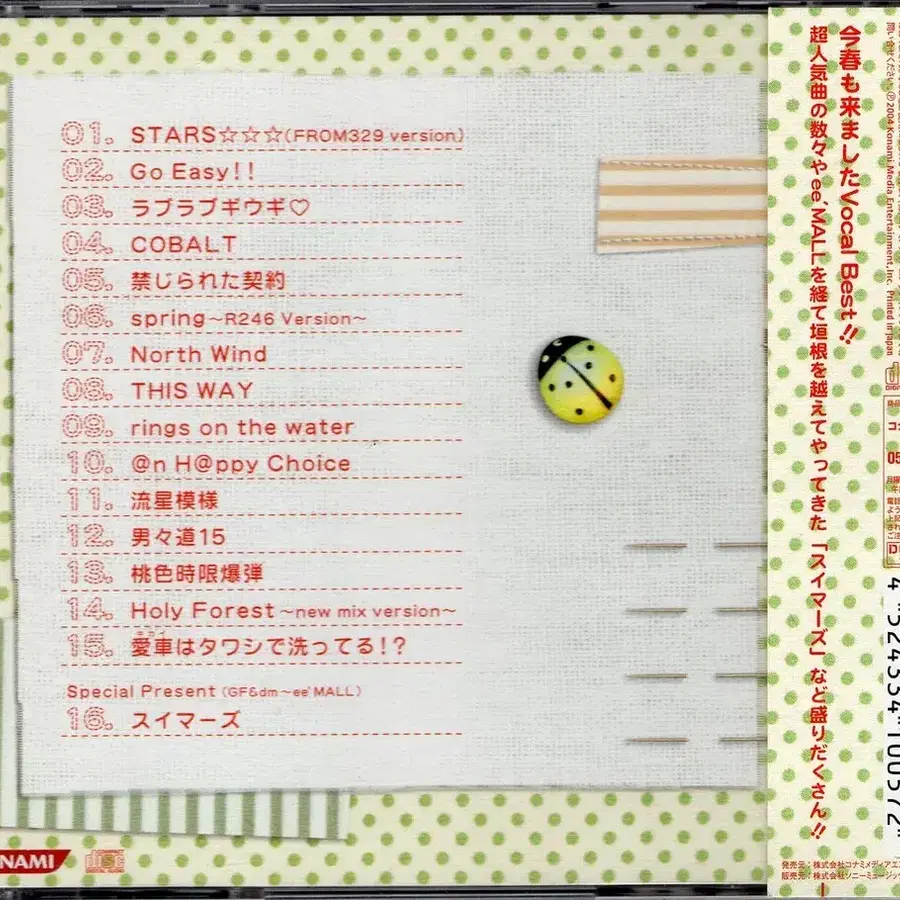 01. STARS☆☆☆(FROM329 version)
02. Go Easy!!
03. ラブラブギウギ♡
04. COBALT
05. 禁じられた契約
06. spring～R246 Version～
07. North Wind
08. THIS WAY
09. rings on the water
10. @n H@ppy Choice
11. 流星模様
12. 男々道15
13. 桃色時限爆弾
14. Holy Forest～new mix version～
15. 愛車はタワシで洗ってる!?
Special Present (GF&dm～ee'MALL)
16. スイマーズ
NAMI
今春も来ましたVocal Best!!
超人気曲の数々やee'MALLを経て垣根を越えてやってきた「スイマーズ」など盛りだくさん!!
問い合せください。Ⓟ2004 Konami Media Entertainment,Inc. Printed in Japan
4 524334 100572
発売元：株式会社コナミメディアエ
販売元：株式会社ソニーミュージッ